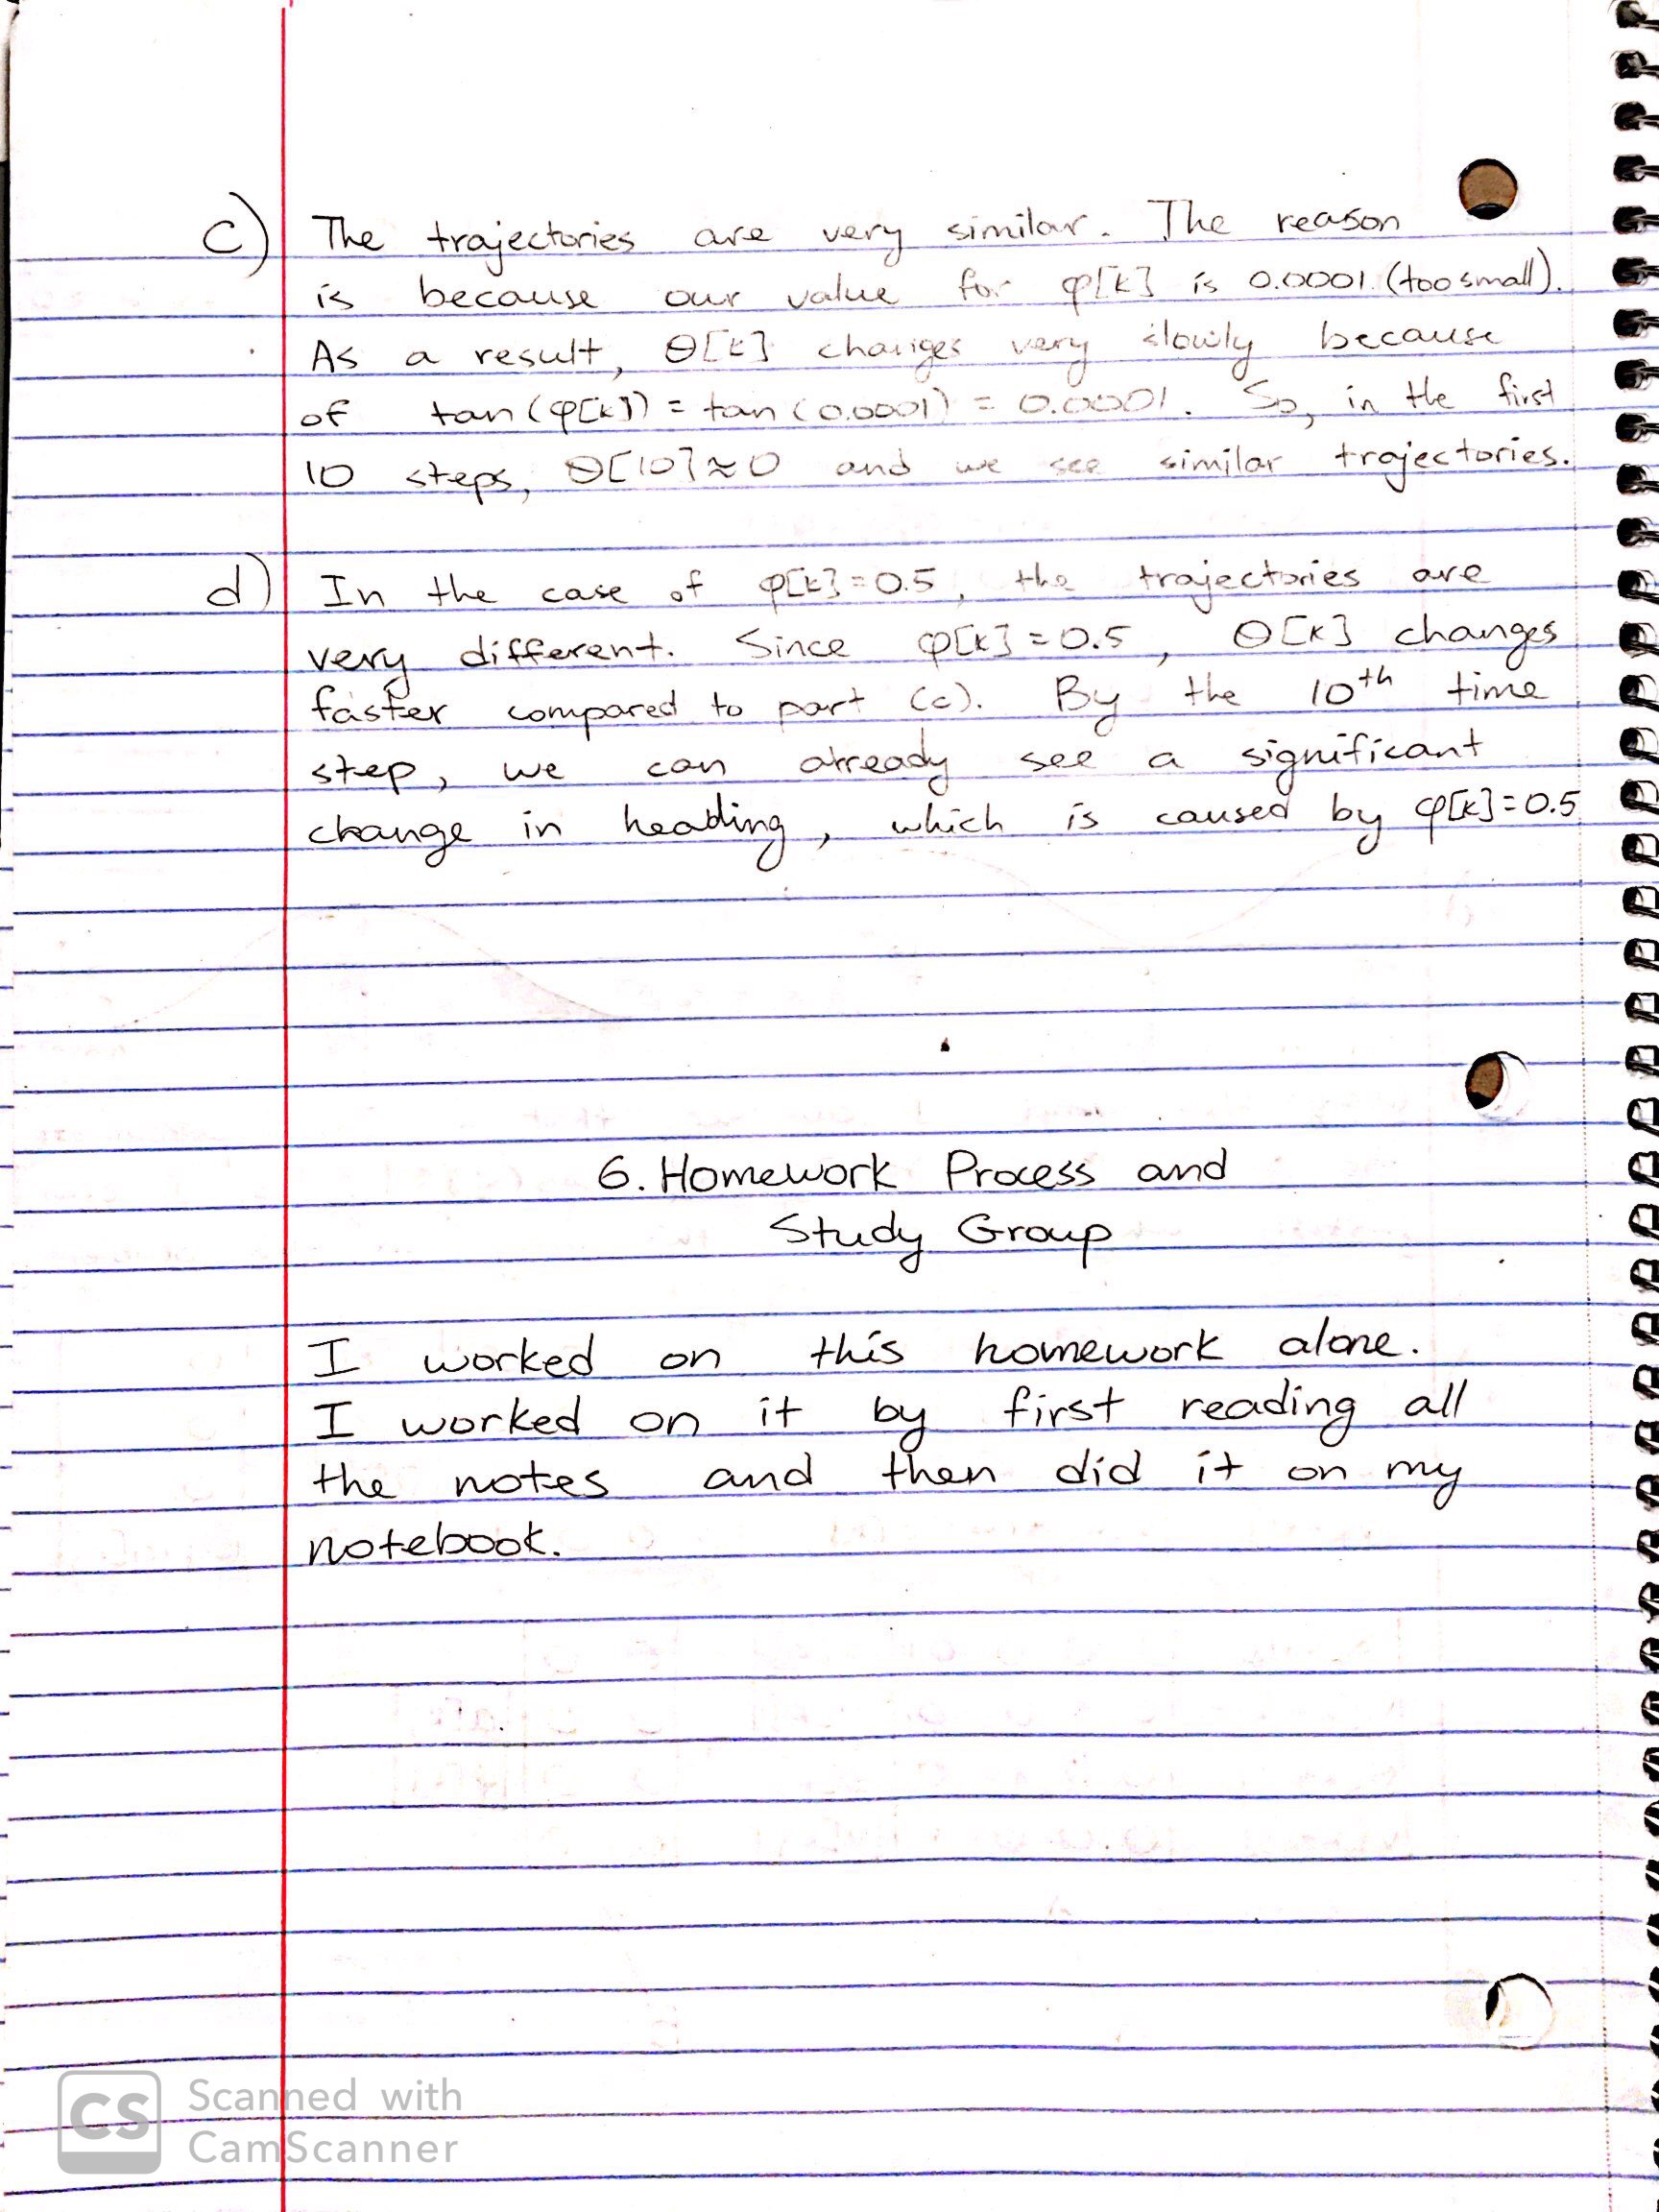 c) The trajectories are very similar. The reason
is because our value for φ[k] is 0.0001. (too small).
As a result, θ[k] changes very slowly because
of tan(φ[k]) = tan(0.0001) = 0.0001. So, in the first
10 steps, θ[10]≈0 and we see similar trajectories.
d) In the case of φ[k]=0.5, the trajectories are
very different. Since φ[k]=0.5, θ[k] changes
faster compared to part (c). By the 10th time
step, we can already see a significant
change in heading, which is caused by φ[k]=0.5
6. Homework Process and
Study Group
I worked on this homework alone.
I worked on it by first reading all
the notes and then did it on my
notebook.
CS Scanned with
CamScanner